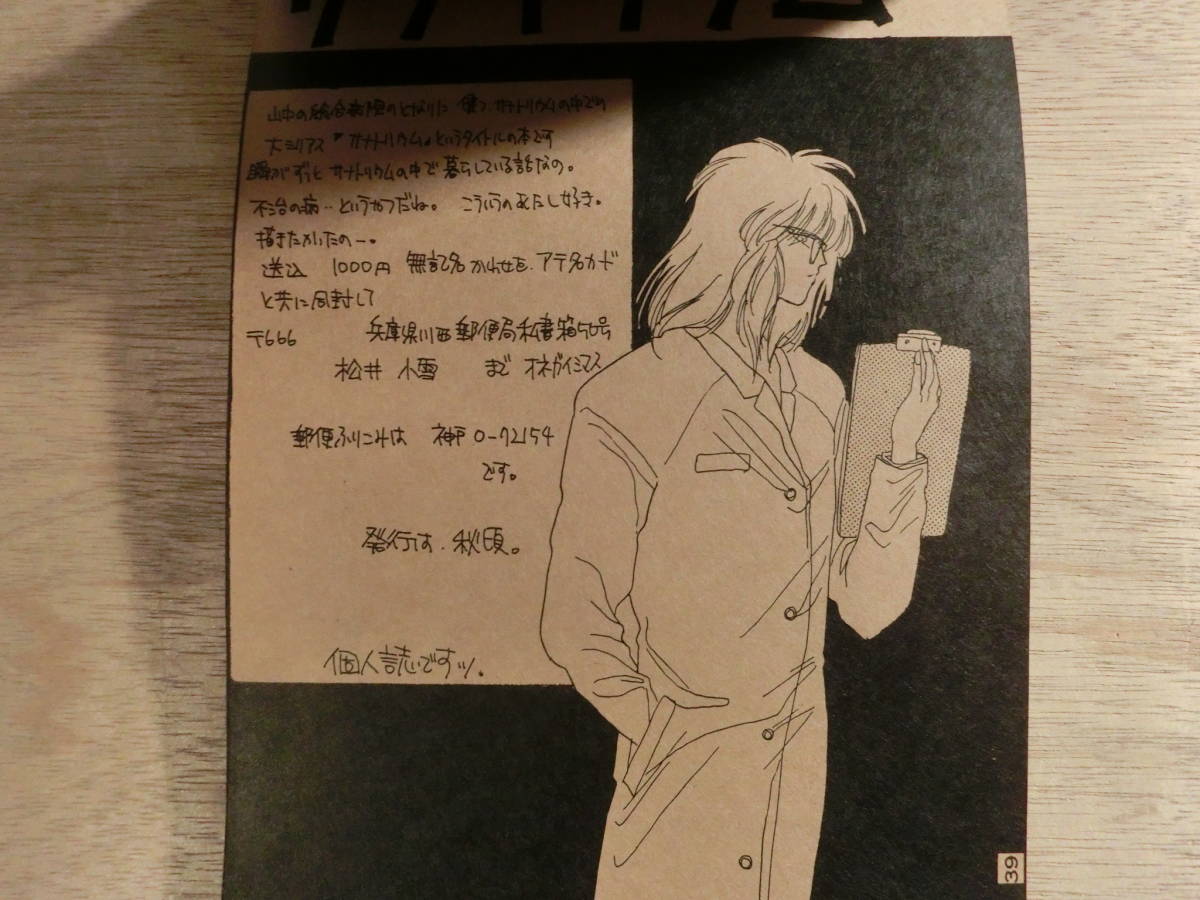 サナトリウム
山中の総合病院のとなりに 建つ サナトリウムの中での
大シリアス『サナトリウム』というタイトルの本です
瞬がずっと サナトリウムの中で暮らしている話なの。
不治の病‥というやつだね。 こういうのあたし好き。
描きたかったの〜。
送込 1000円 無記名かわせを、アテ名カード
と共に同封して
〒666 兵庫県川西郵便局私書箱56号
松井 小雪 まで オネガイシマス
郵便ふりこみは 神戸 0-72154
です。
発行は、秋頃。
個人誌ですッ。
39